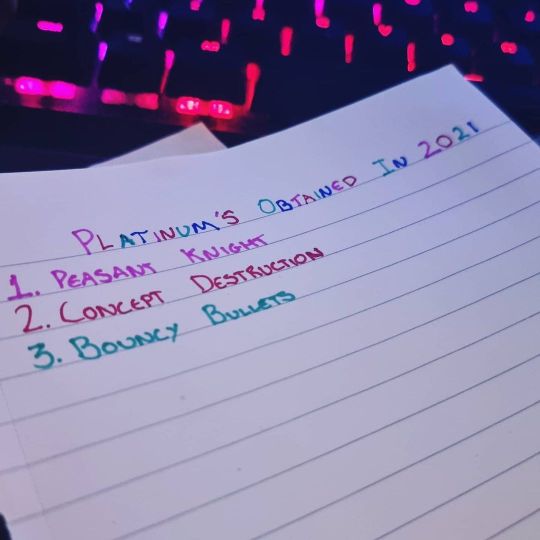 PLATINUM'S OBTAINED IN 2021
1. PEASANT KNIGHT
2. CONCEPT DESTRUCTION
3. BOUNCY BULLETS